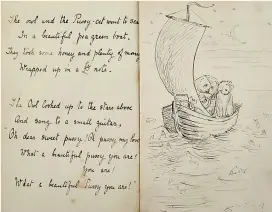 The owl and the Pussy-cat went to sea
In a beautiful pea green boat.
They took some honey and plenty of money
Wrapped up in a £5 note.
The Owl looked up to the stars above
And sang to a small guitar,
Oh dear sweet pussy! O pussy my love
What a beautiful pussy you are!
You are!
What a beautiful Pussy you are!"